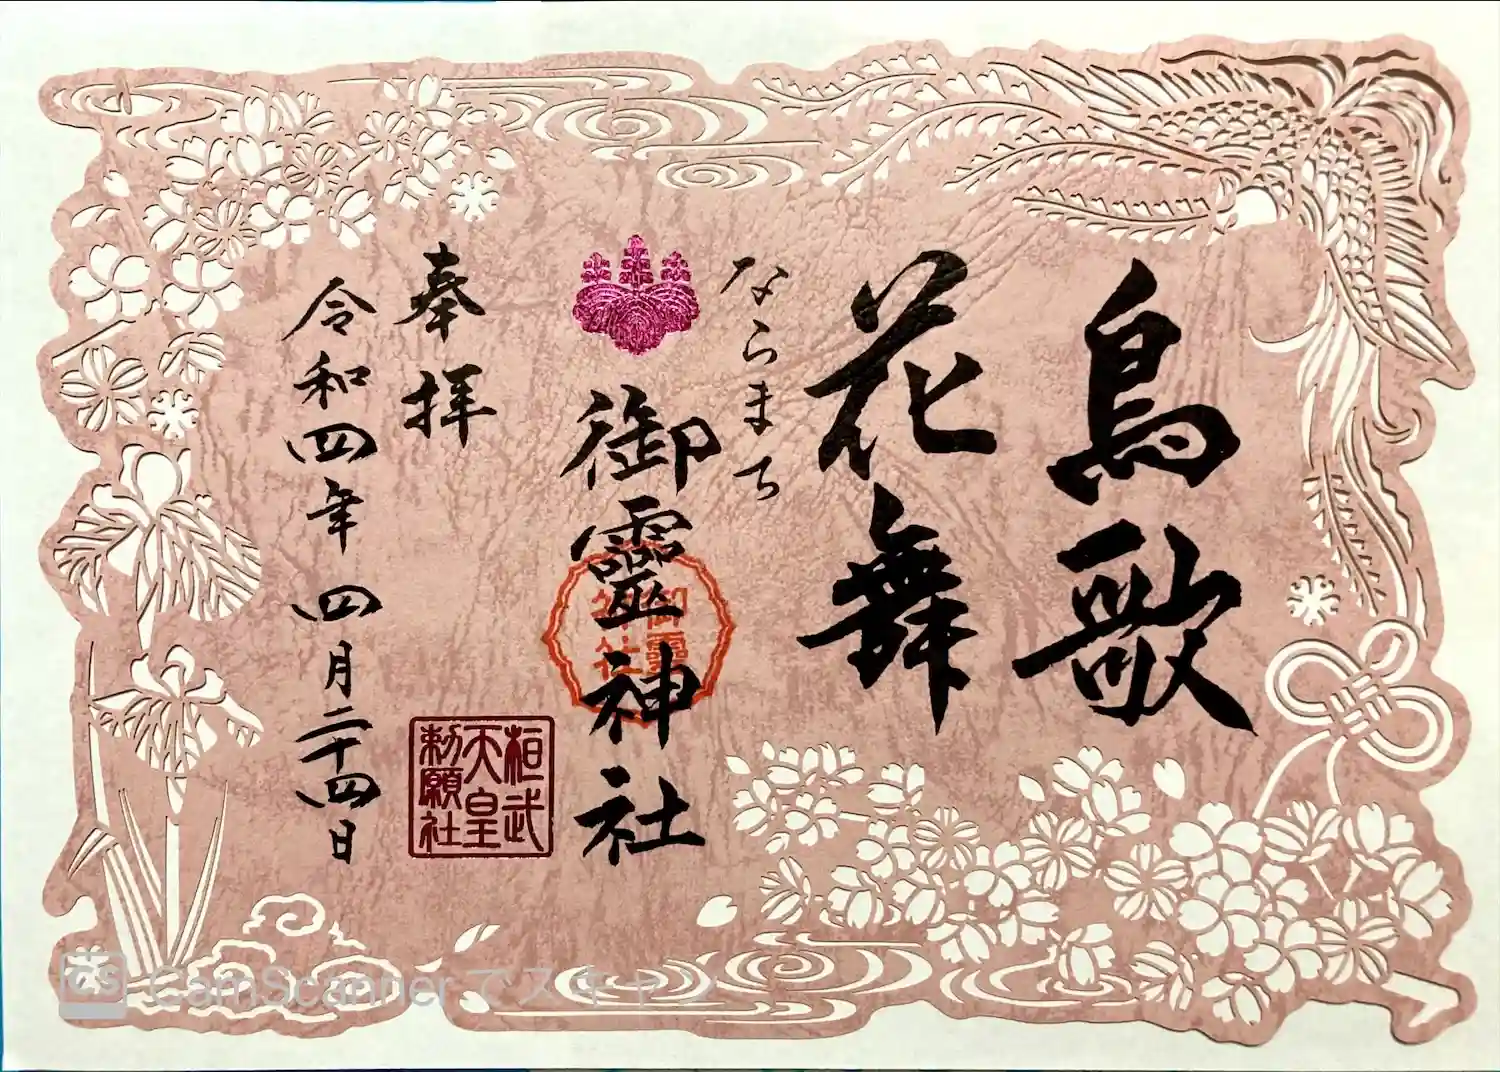 鳥歌
花舞
ならまち
御靈神社
御靈神社
奉拝
桓武
天皇
勅願社
令和四年四月二十四日
CS CamScannerでスキャン